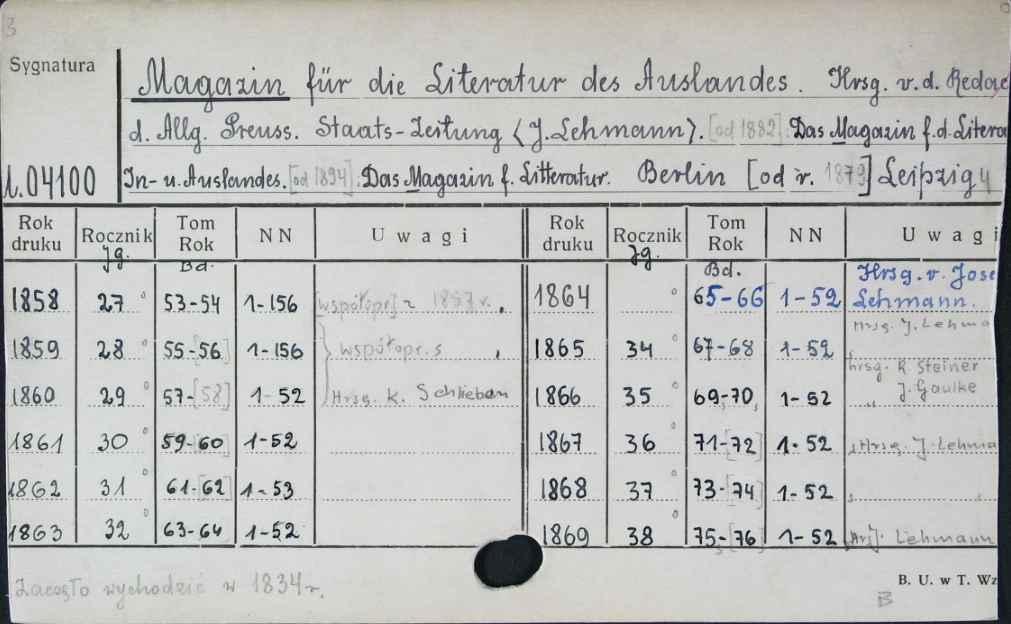 B
Sygnatura
Magazin für die Literatur des Auslandes. Hrsg. v. d. Redac
d. Allg. Preuss. Staats-Zeitung <J. Lehmann>. [od 1882]: Das Magazin f. d. Litera
L.04100 In- u. Auslandes. [od 1894]. Das Magazin f. Litteratur. Berlin [od r. 1879] Leipzig
Rok druku Rocznik Tom Rok NN Uwagi Rok druku Rocznik Tom Rok NN Uwagi
Jg. Bd. Jg. Bd. Hrsg. v. Jose
1858 27 53-54 1-156 [współopr.] z 1857 r. 1864 65-66 1-52 Lehmann.
Hrsg. J. Lehma
1859 28 55-56 1-156 współopr. s 1865 34 67-68 1-52
hrsg. R. Steiner
1860 29 57-[58] 1-52 Hrsg. K. Schlieben 1866 35 69-70 1-52 " J. Gaulke
1861 30 59-60 1-52 1867 36 71-72 1-52 Hrsg. J. Lehma
1862 31 61-[62] 1-53 1868 37 73-74 1-52
1863 32 63-64 1-52 1869 38 75-[76] 1-52 Lehmann
Zaczęło wychodzić w 1834 r.
B. U. w T. Wz
B